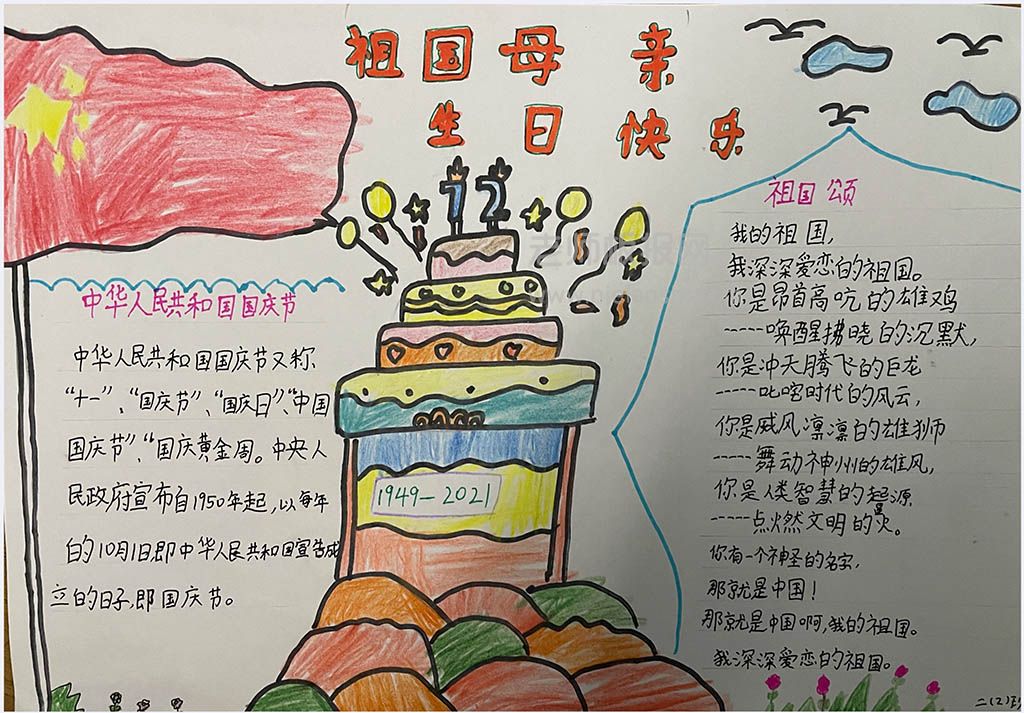 祖国母亲
生日快乐
12
1949-2021
中华人民共和国国庆节
中华人民共和国国庆节又称
“十一”、“国庆节”、“国庆日”、“中国
国庆节”、“国庆黄金周。中央人
民政府宣布自1950年起,以每年
的10月1日即中华人民共和国宣告成
立的日子,即国庆节。
祖国颂
我的祖国,
我深深爱恋的祖国。
你是昂首高吭的雄鸡
-----唤醒拂晓的沉默,
你是冲天腾飞的巨龙
-----叱咤时代的风云,
你是威风凛凛的雄狮
-----舞动神州的雄风,
你是人类智慧的起源
-----点燃文明的火。
你有一个神圣的名字,
那就是中国!
那就是中国啊,我的祖国。
我深深爱恋的祖国。